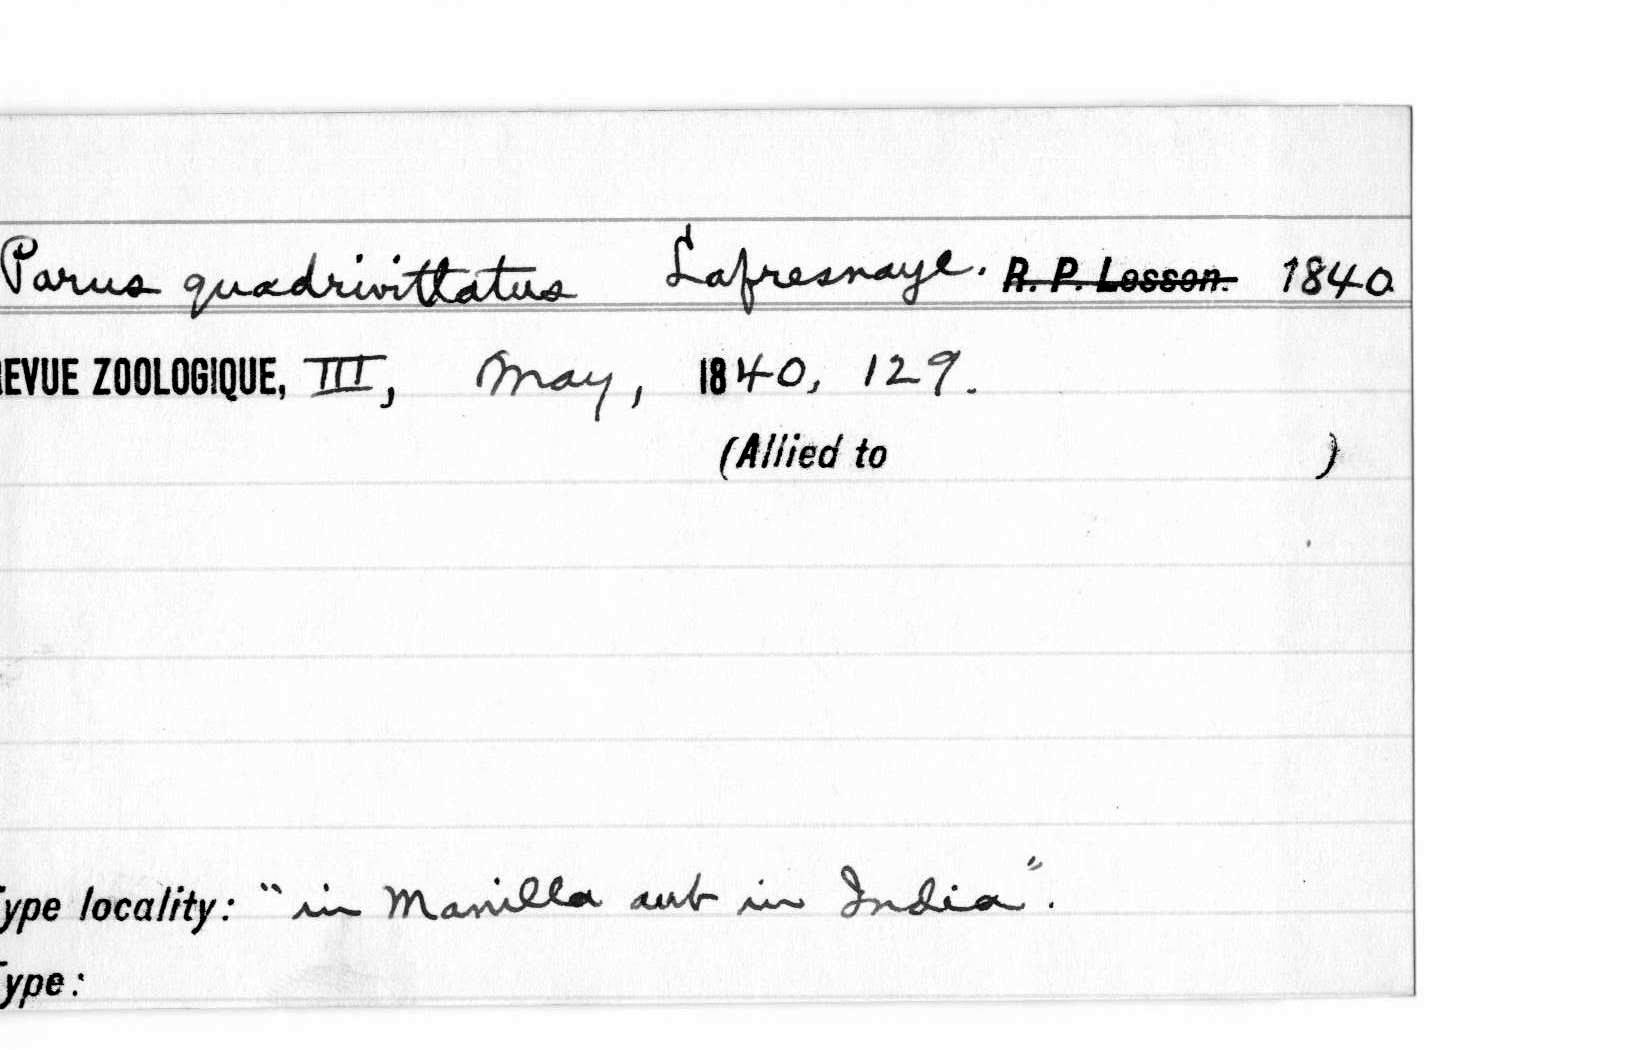 Parus quadrivittatus Lafresnaye. R. P. Lesson. 1840
REVUE ZOOLOGIQUE, III, May, 1840, 129.
(Allied to )
Type locality: "in Manilla aut in India".
Type: